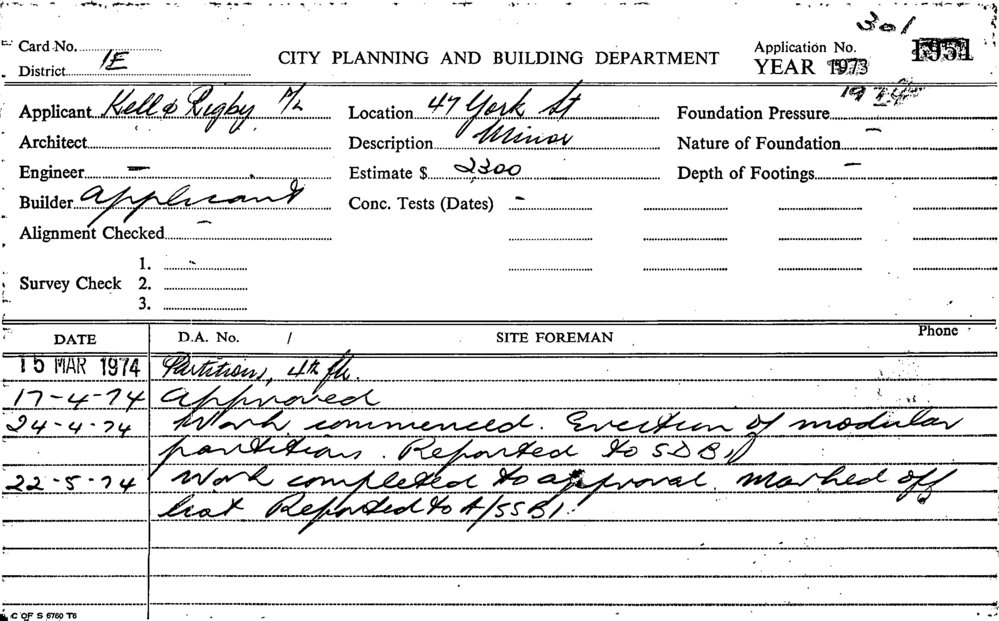 301
Card No.
District 1E
CITY PLANNING AND BUILDING DEPARTMENT
Application No. 1951
YEAR 1973
1974
Applicant Kell & Rigby P/L
Location 47 York St
Foundation Pressure
Architect
Description Minor
Nature of Foundation –
Engineer –
Estimate $ 2300
Depth of Footings –
Builder Applicant
Conc. Tests (Dates) –
Alignment Checked –
Survey Check 1.
2.
3.
DATE D.A. No. / SITE FOREMAN Phone
15 MAR 1974 Partitions, 4th flr.
17-4-74 Approved
24-4-74 Work commenced. Erection of modular
partitions. Reported to SDB1
22-5-74 Work completed to approval. Marked off
list Reported to A/SSB1.
C OF S 6760 T6